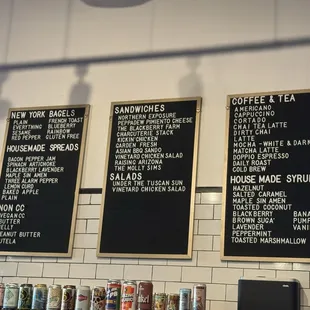 NEW YORK BAGELS
PLAIN FRENCH TOAST
EVERYTHING BLUEBERRY
SESAME RAINBOW
PEPPER GLUTEN FREE
HOUSEMADE SPREADS
BACON PEPPER JAM
SPINACH ARTICHOKE
BLACKBERRY LAVENDER
MAPLE SIN AMEN
THREE ALARM PEPPER
LEMON CURD
BAKED APPLE
PLAIN
NON CC
VEGAN CC
BUTTER
PEANUT BUTTER
UTELLA
SANDWICHES
NORTHERN EXPOSURE
PEPPADEW PIMIENTO CHEESE
THE BLACKBERRY FARM
CHARCUTERIE STACK
KICKIN CHICKEN
GARDEN FRESH
ASIAN BBQ BANJO
VINEYARD CHICKEN SALAD
RAISING ARIZONA
THE MOLLY SIMS
SALADS
UNDER THE TUSCAN SUN
VINEYARD CHICKEN SALAD
COFFEE & TEA
AMERICANO
CAPPUCCINO
CORTADO
CHAI TEA LATTE
DIRTY CHAI
LATTE
MOCHA - WHITE & DAR
MATCHA LATTE
DOPPIO ESPRESSO
DAILY ROAST
COLD BREW
HOUSE MADE SYRU
HAZELNUT
SALTED CARAMEL
MAPLE SIN AMEN
COCONUT
BLACKBERRY BANA
BROWN SUGAR PUM
LAVENDER VANI
PEPPERMINT
TOASTED MARSHMALLOW